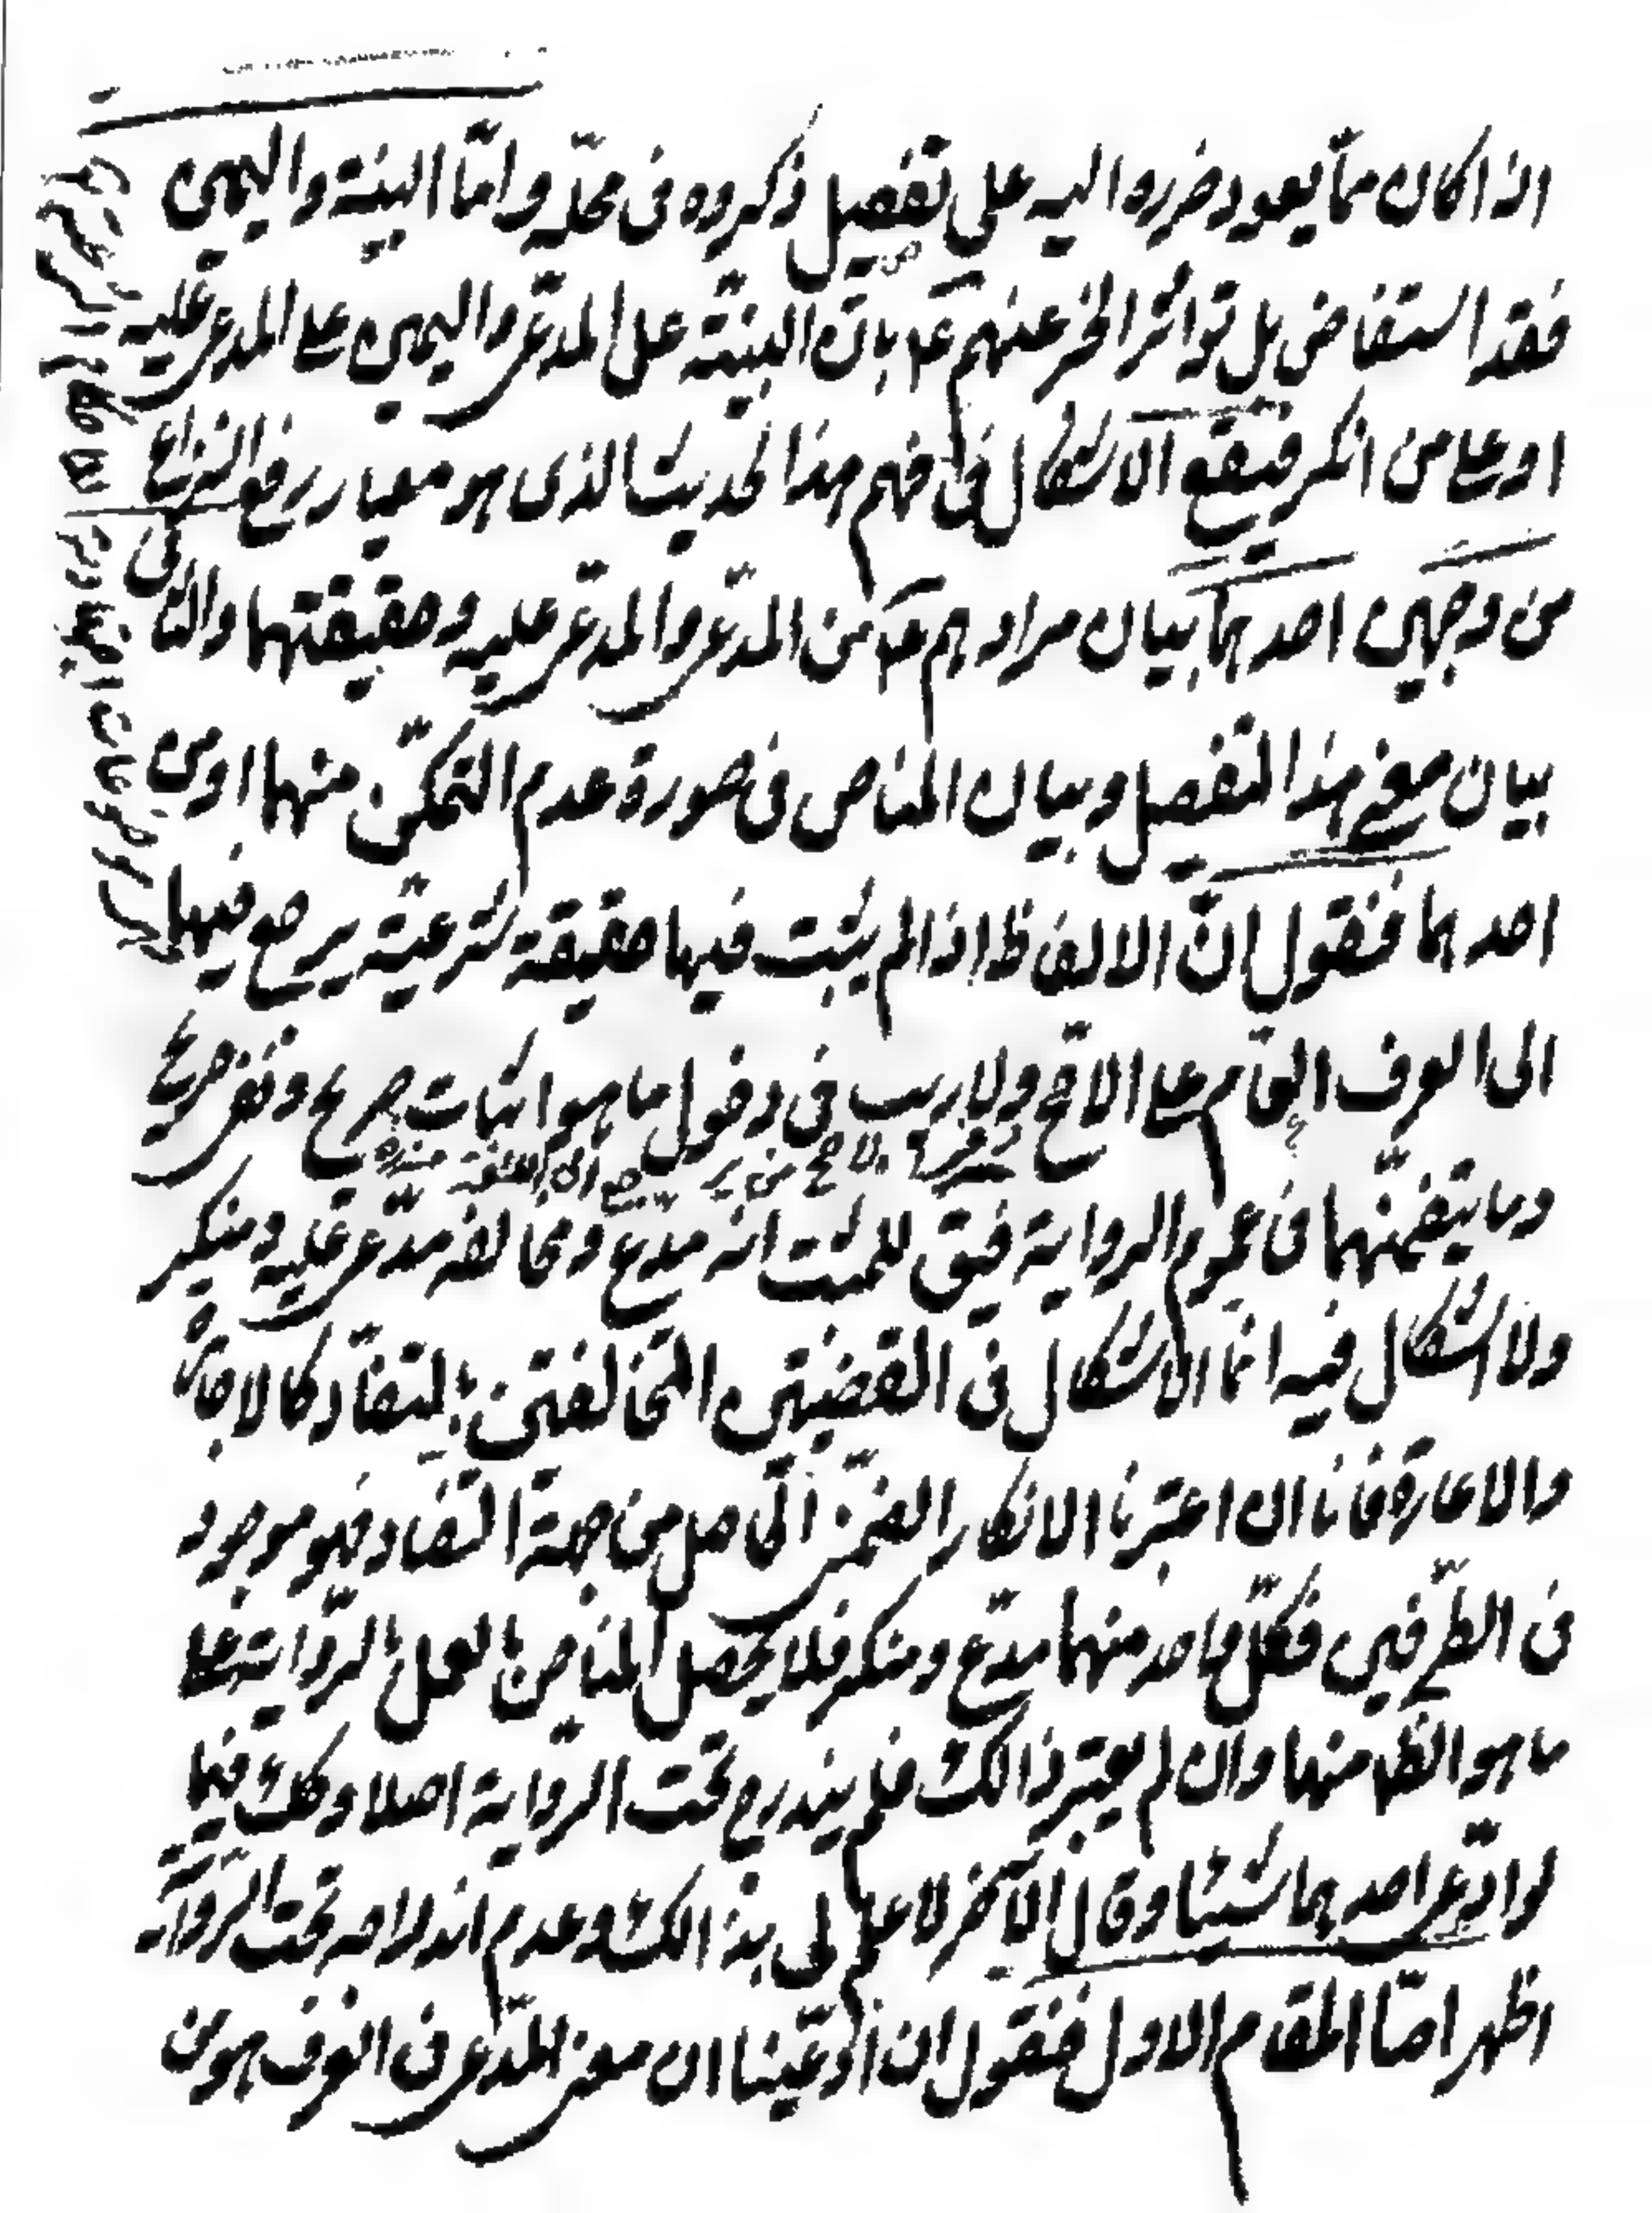 اذا كان ممّا يعود ضرره اليه على تفصيل ذكروه فى محلّه وامّا البيّنة واليمين
فقد استفاض بل تواتر الخبر عنهم ع بانّ البيّنة على المدعى واليمين على المدعى عليه
او على من انكر فيقع الاشكال فى فهم هذا الحديث الذى هو معيار رفع النزاع
من وجهين احدهما بيان مرادهم ع من المدّعى والمدّعى عليه وحقيقتهما والثانى
بيان معنى هذا التفصيل وبيان المناص فى صورة عدم التمكّن منهما او من
احدهما فنقول انّ الالفاظ اذا لم يثبت فيها حقيقة شرعيّة يرجع فيها
الى العرف العام على الاصح ولا ريب فى دخول ما هو اثبات صريح ونفى صريح
وما يتضمّنهما فى عموم الرواية فيق للمثبت انه مدع ومخالفه مدّعى عليه ومنكر
ولا اشكال فيه انّما الاشكال فى القضيتين المتخالفتين بالتضادّ كالاجارة
والاعارة فانا ان اعتبرنا الانكار الضمنى الحاصل من جهة التضاد فهو موجود
فى الطّرفين فكلّ واحد منهما مدّع ومنكر فلا يحصل المناص بالعمل بالرّواية على
ما هو الظ منها وان لم يعتبر ذالك فلم يندرج تحت الرّواية اصلا وكك فيما
لو ادّعى احدهما شيئا وقال الاخر لا علم لى بذالك وعدم اندراجه تحت الرّواية
اظهر امّا المقام الاول فنقول ان ادّعينا ان معنى المدّعى فى العرف هو من